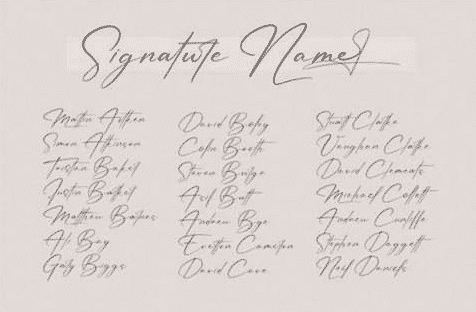 Signature Name
Martin Aitken
Simon Atkinson
Tristan Baker
Justin Barker
Matthew Barnes
Ali Bay
Gary Biggs
David Boley
Colin Booth
Steven Budge
Asil Butt
Andrew Bye
Evelton Cameron
David Cave
Stuart Clarke
Vaughan Clarke
David Clements
Michael Collett
Andrew Cunliffe
Stephen Doggett
Neil Daniels